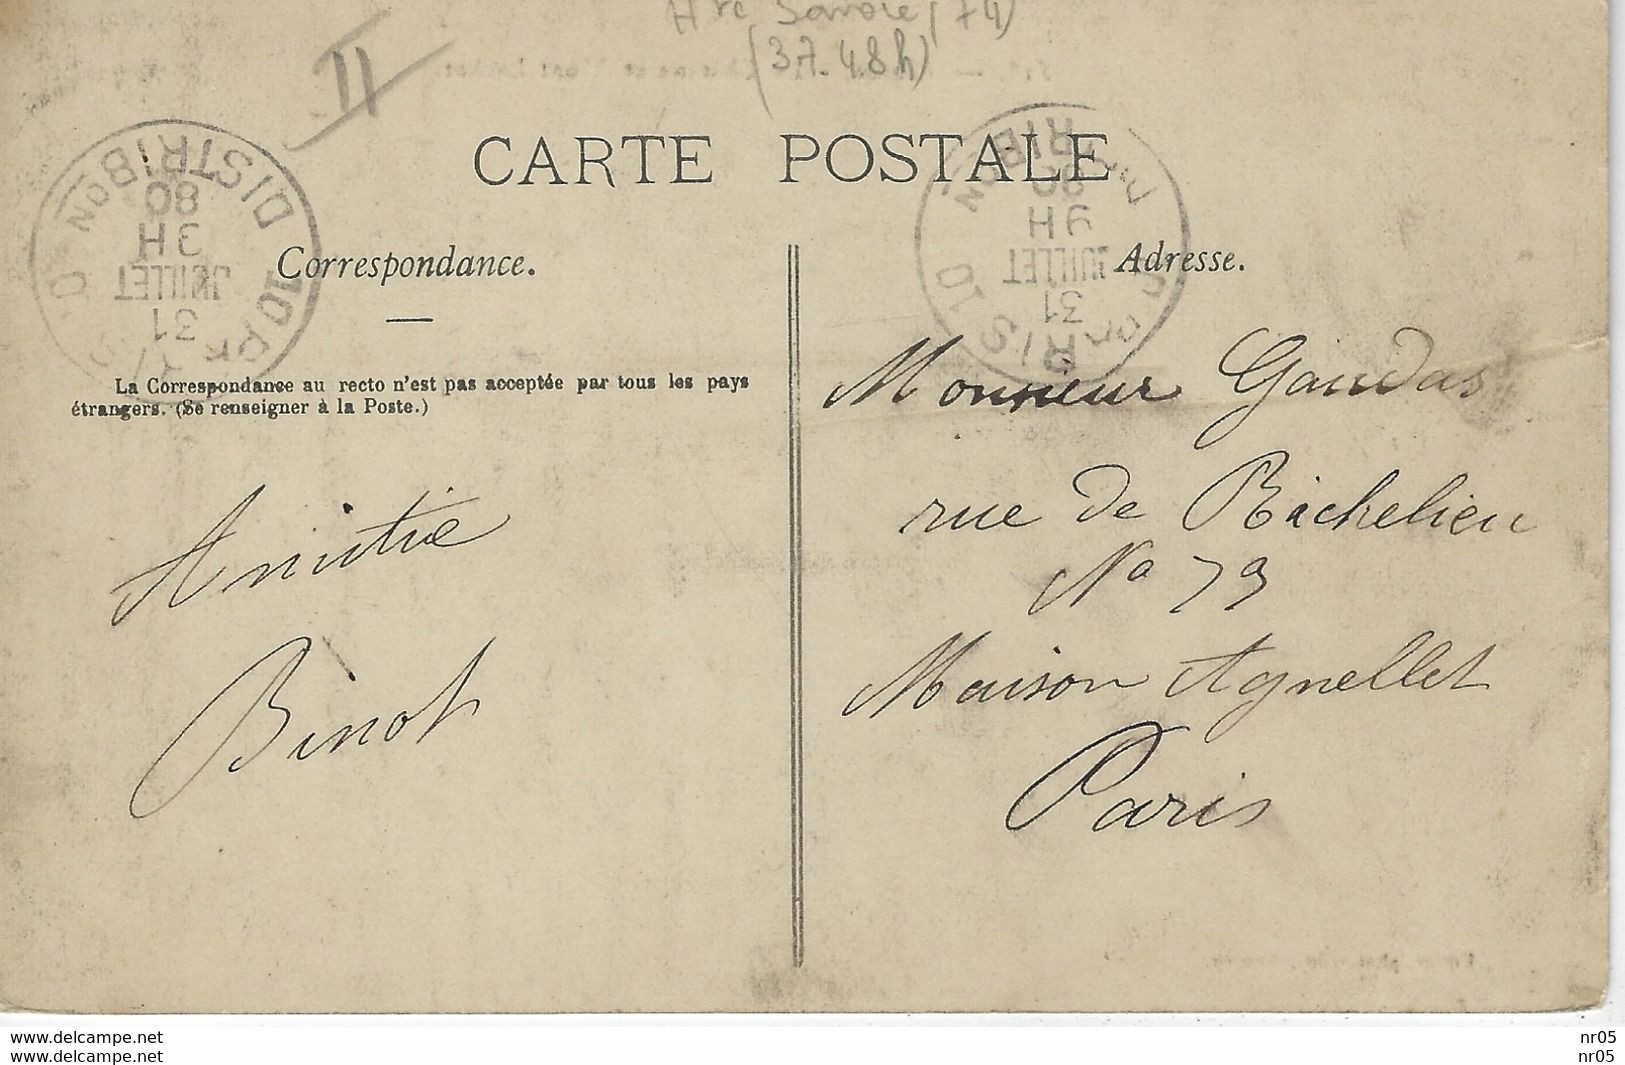 Hte Savoie (74)
(37-48h)
11
CARTE POSTALE
DISTRIBON
80
3H
JUILLET
31
RIBON
80
9H
JUILLET
31
Correspondance.
Adresse.
La Correspondance au recto n'est pas acceptée par tous les pays
étrangers. (Se renseigner à la Poste.)
Monsieur Gaudas
rue de Richelieu
No 79
Maison Agnellet
Paris
Amitie
Binot
www.delcampe.net
www.delcampe.net
nr05
nr05